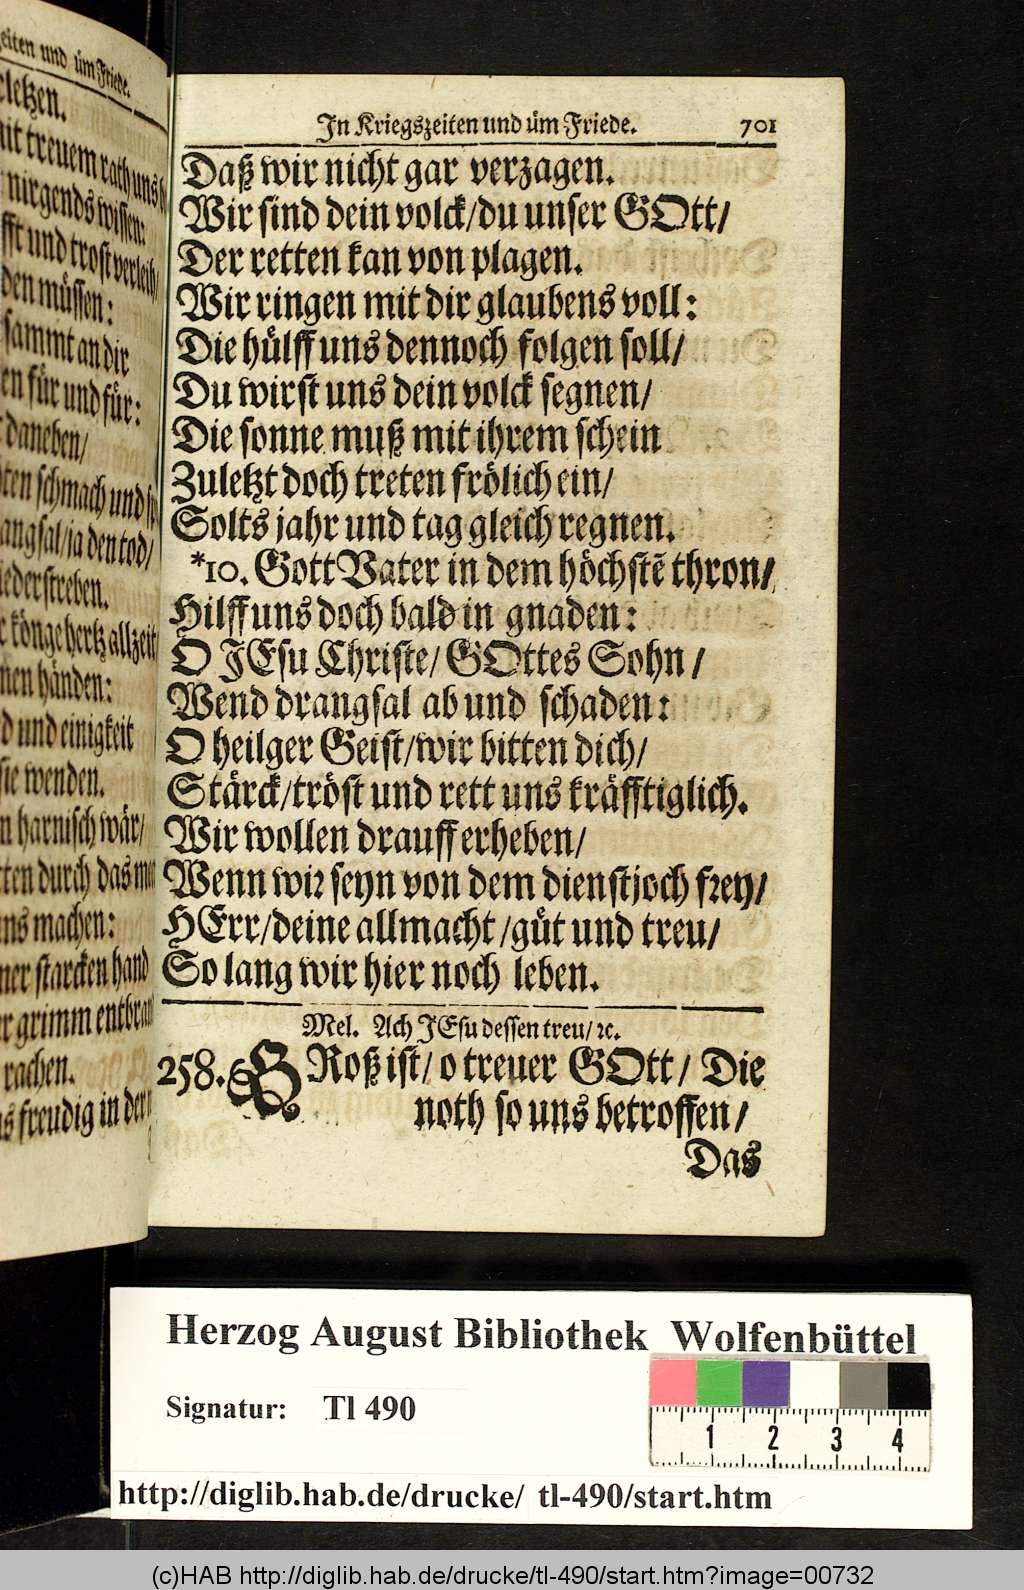 eiten und üm Friede.
letzen.
mit treuem rath uns
nirgends wissen:
fft und trost verleih/
den müssen:
sammt an dir
en für und für:
daneben/
ten schmach und
angsal/ja den tod/
iederstreben.
könge hertz allzeit
nen händen:
d und einigkeit
sie wenden.
n harnisch wär/
ten durch das
uns machen:
ner starcken hand
r grimm
rachen.
s freudig in der
In Kriegszeiten und üm Friede. 701
Daß wir nicht gar verzagen.
Wir sind dein volck/du unser GOtt/
Der retten kan von plagen.
Wir ringen mit dir glaubens voll:
Die hülff uns dennoch folgen soll/
Du wirst uns dein volck segnen/
Die sonne muß mit ihrem schein
Zuletzt doch treten frölich ein/
Solts jahr und tag gleich regnen.
*10. Gott Vater in dem höchstē thron/
Hilff uns doch bald in gnaden:
O JEsu Christe/ GOttes Sohn/
Wend drangsal ab und schaden:
O heilger Geist/wir bitten dich/
Stärck/tröst und rett uns kräfftiglich.
Wir wollen drauff erheben/
Wenn wir seyn von dem dienstjoch frey/
HErr/deine allmacht/güt und treu/
So lang wir hier noch leben.
Mel. Ach JEsu dessen treu/ ꝛc.
258. GRoß ist/ o treuer GOtt/ Die
noth so uns betroffen/
Das
Herzog August Bibliothek Wolfenbüttel
Signatur: Tl 490
1 2 3 4
http://diglib.hab.de/drucke/ tl-490/start.htm
(c)HAB http://diglib.hab.de/drucke/tl-490/start.htm?image=00732